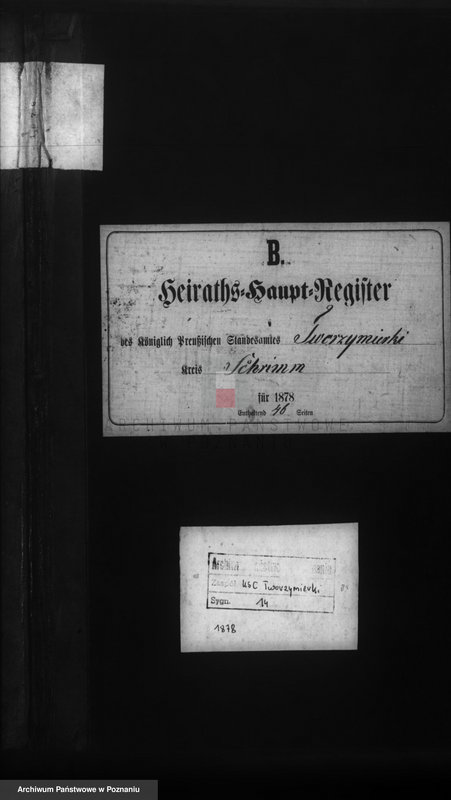 B.
Heiraths-Haupt-Register
des Königlich Preußischen Standesamtes Tworzymirki
Kreis Schrimm
für 1878
Enthaltend 46 Seiten
ARCHIWUM PAŃSTWOWE
W POZNANIU
Zespół USC Tworzymirki
Sygn. 14
1878
Archiwum Państwowe w Poznaniu